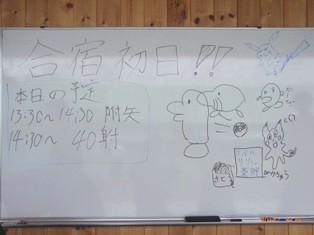 合宿初日!!
本日の予定
13:30~14:30 附矢
14:30~ 40射